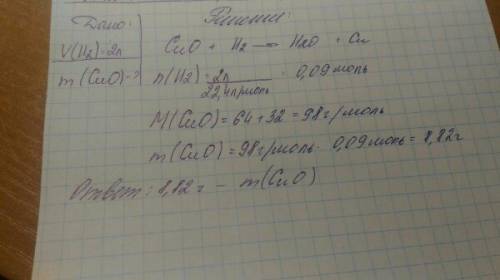 Дано:
Решение:
V(H2)=2л
CuO + H2 → H2O + Cu
m(CuO)-?
n(H2)=2л/22,4л/моль = 0,09моль
M(CuO)=64+32=98г/моль
m(CuO)=98г/моль · 0,09моль=8,82г
Ответ: 8,82г - m(CuO)